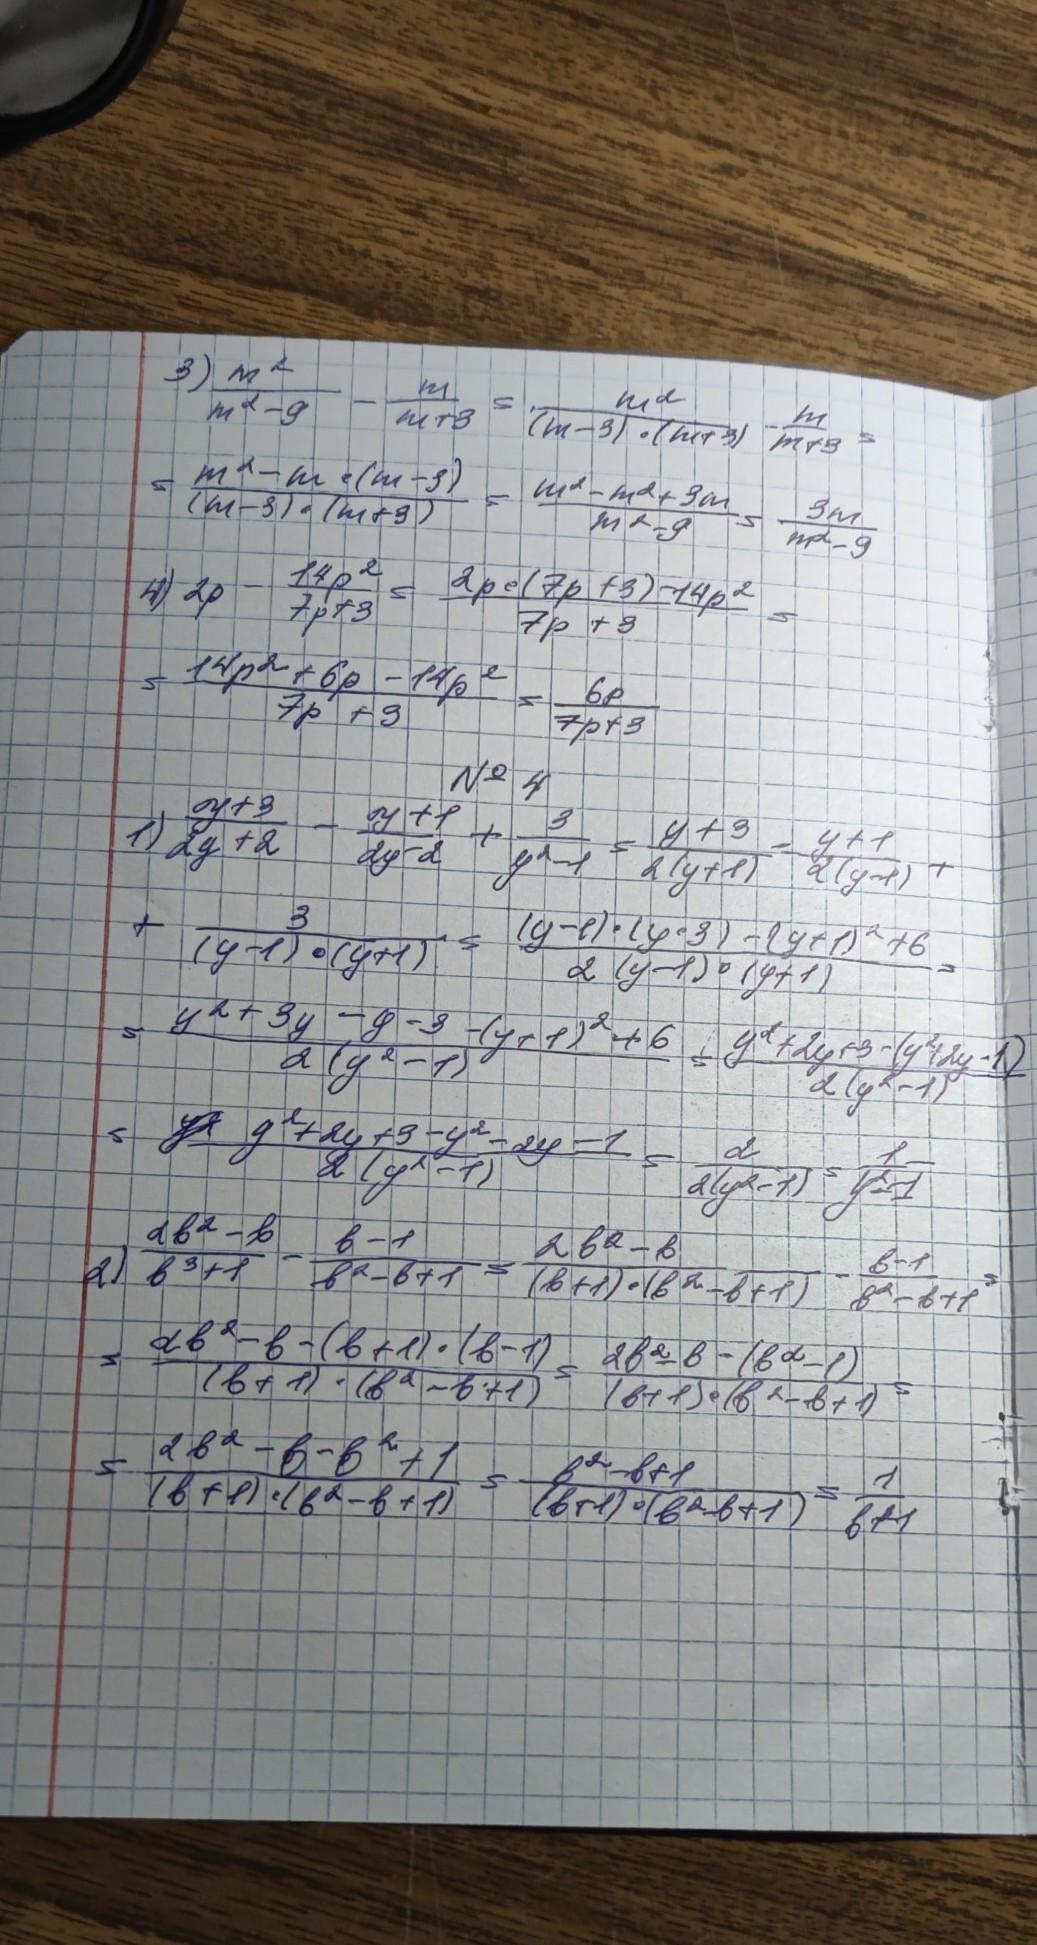 3) m²/(m²-9) - m/(m+3) = m²/((m-3)·(m+3)) - m/(m+3) =
= (m²-m·(m-3))/((m-3)·(m+3)) = (m²-m²+3m)/(m²-9) = 3m/(m²-9)
4) 2p - 14p²/(7p+3) = (2p·(7p+3)-14p²)/(7p+3) =
= (14p²+6p-14p²)/(7p+3) = 6p/(7p+3)
№ 4
1) (y+3)/(2y+2) - (y+1)/(2y-2) + 3/(y²-1) = (y+3)/(2(y+1)) - (y+1)/(2(y-1)) +
+ 3/((y-1)·(y+1)) = ((y-1)·(y·3)-(y+1)²+6)/(2(y-1)·(y+1)) =
= (y²+3y-y-3-(y+1)²+6)/(2(y²-1)) = (y²+2y+3-(y²+2y-1))/(2(y²-1))
= (y²+2y+3-y²-2y-1)/(2(y²-1)) = 2/(2(y²-1)) = 1/(y²-1)
2) (2b²-b)/(b³+1) - (b-1)/(b²-b+1) = (2b²-b)/((b+1)·(b²-b+1)) - (b-1)/(b²-b+1) =
= (2b²-b-(b+1)·(b-1))/((b+1)·(b²-b+1)) = (2b²-b-(b²-1))/((b+1)·(b²-b+1)) =
= (2b²-b-b²+1)/((b+1)·(b²-b+1)) = (b²-b+1)/((b+1)·(b²-b+1)) = 1/(b+1)